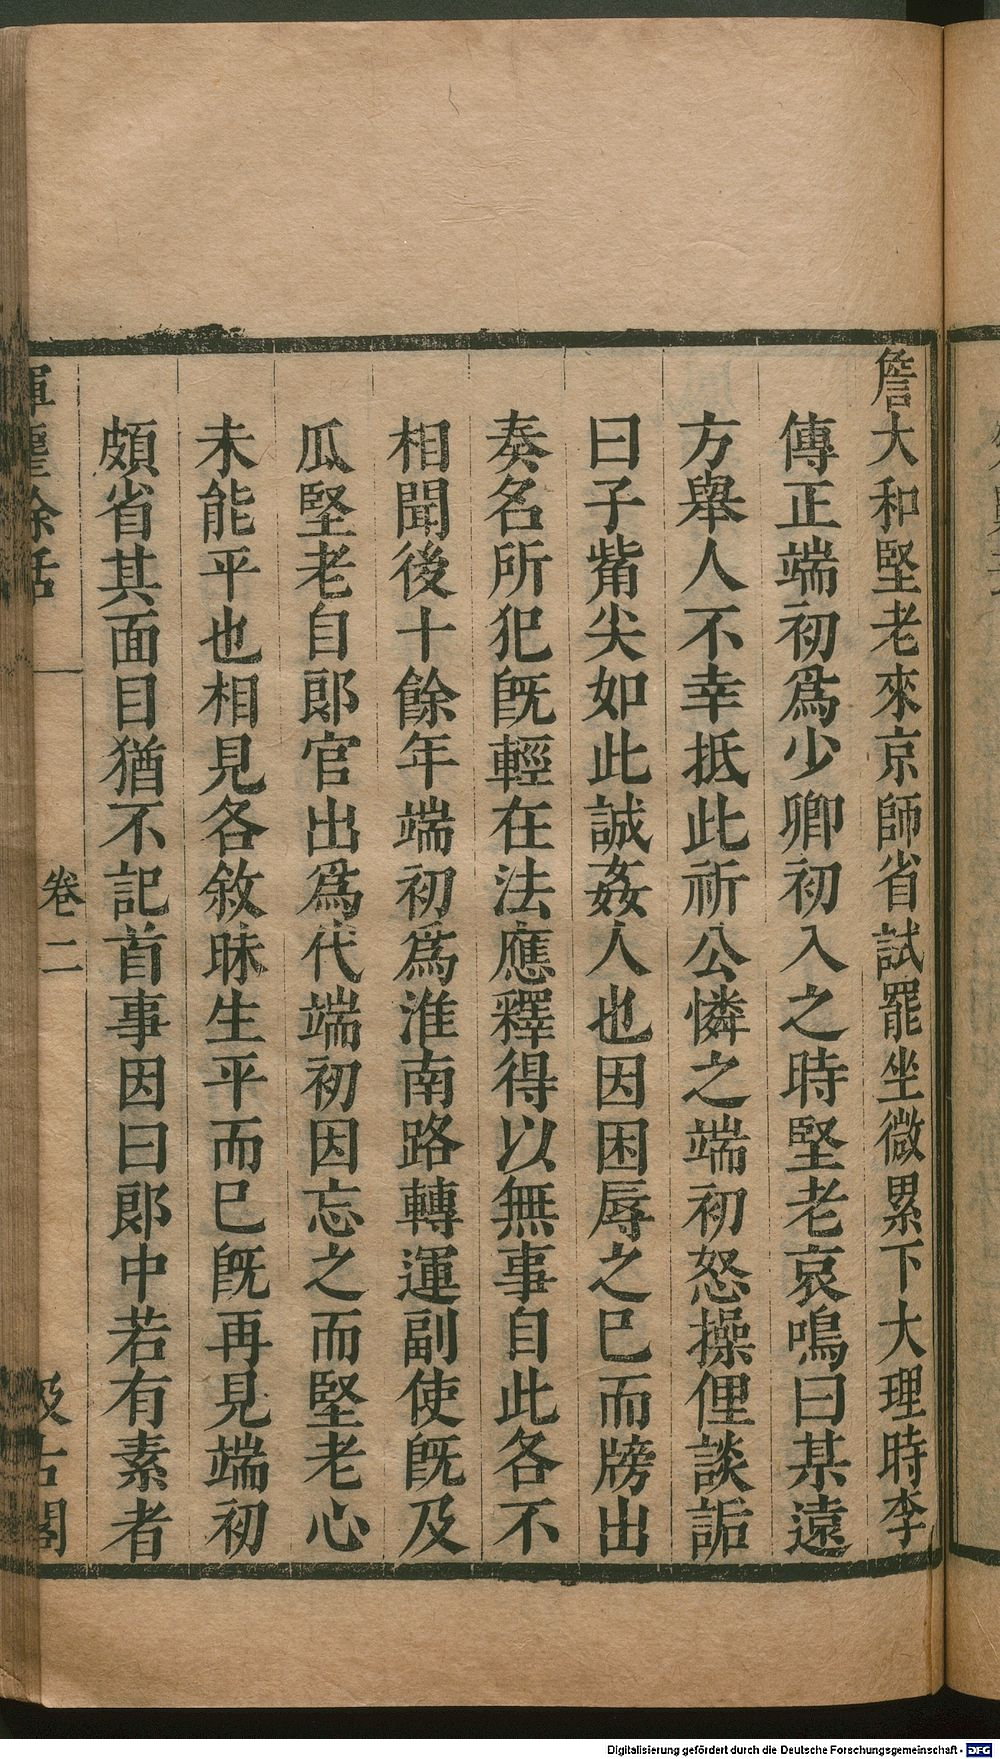 詹大和堅老來京師省試罷坐微累下大理時李
傳正端初爲少卿初入之時堅老哀鳴曰某遠
方舉人不幸抵此祈公憐之端初怒操俚談詬
曰子觜尖如此誠姦人也因困辱之巳而牓出
奏名所犯旣輕在法應釋得以無事自此各不
相聞後十餘年端初爲淮南路轉運副使旣及
瓜堅老自郎官出爲代端初因忘之而堅老心
未能平也相見各敘昧生平而巳旣再見端初
頗省其面目猶不記首事因曰郎中若有素者
餘話
卷二
汲古閣
Digitalisierung gefördert durch die Deutsche Forschungsgemeinschaft - DFG